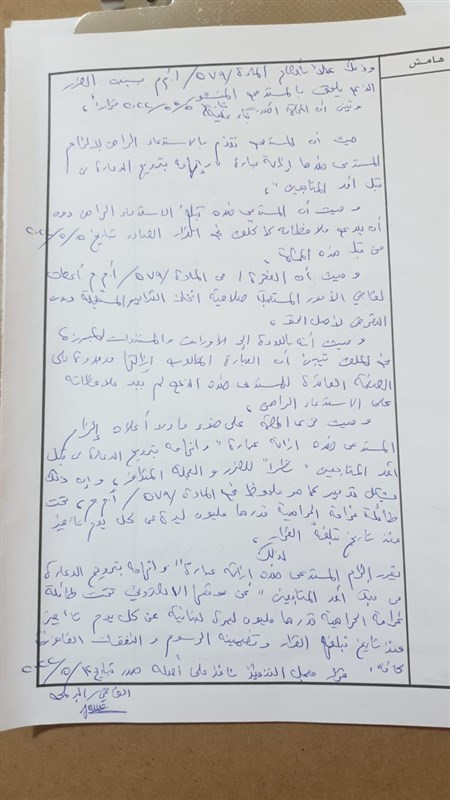 هامش
وذلك عملاً بأحكام المادة /٥٧٩/ أ.م.م بسبب الضرر
الذي يلحق بالمستدعي
وتبين أن المحكمة أصدرت بتاريخ قراراً،
حيث أن المستدعي تقدم بالاستدعاء الراهن بإلزام
المستدعى ضدها إزالة عبارة وإتهامه بترويج الدعارة من
قبل أحد المتابعين"،
وحيث أن المستدعى ضده تبلغ الاستدعاء الراهن دون
أن يبدي ملاحظاته كما كلف في القرار الصادر بتاريخ
من قبل هذه المحكمة،
وحيث أن الفقرة ١/ من المادة /٥٧٩/ أ.م.م أعطت
لقاضي الأمور المستعجلة صلاحية اتخاذ التدابير المستعجلة دون
التعرض لأصل الحق،
وحيث أنه بالعودة إلى الأوراق والمستندات المبرزة
في الملف تبين أن العبارة المطلوب إزالتها موجودة على
الصفحة العائدة للمستدعى ضده الذي لم يبد ملاحظاته
على الاستدعاء الراهن،
وحيث ترى المحكمة على ضوء ما ورد أعلاه إلزام
المستدعى ضده إزالة عبارة "وإتهامه بترويج الدعارة من قبل
أحد المتابعين" نظراً للضرر والعجلة وإن ذلك
يشكل تدبير كما هو ملحوظ في المادة /٥٧٩/ أ.م.م، تحت
طائلة غرامة إكراهية قدرها مليون ليرة عن كل يوم تأخير
منذ تاريخ تبلغه القرار.
لذلك
يقرر إلزام المستدعى ضده إزالة عبارة "وإتهامه بترويج الدعارة
من قبل أحد المتابعين" عن موقعها الالكتروني تحت طائلة
غرامة إكراهية قدرها مليون ليرة لبنانية عن كل يوم تأخير
منذ تاريخ تبلغها القرار وتضمينه الرسوم والنفقات القانونية
كافة.
قرار معجل التنفيذ نافذ على أصله صدر بتاريخ
القاضي